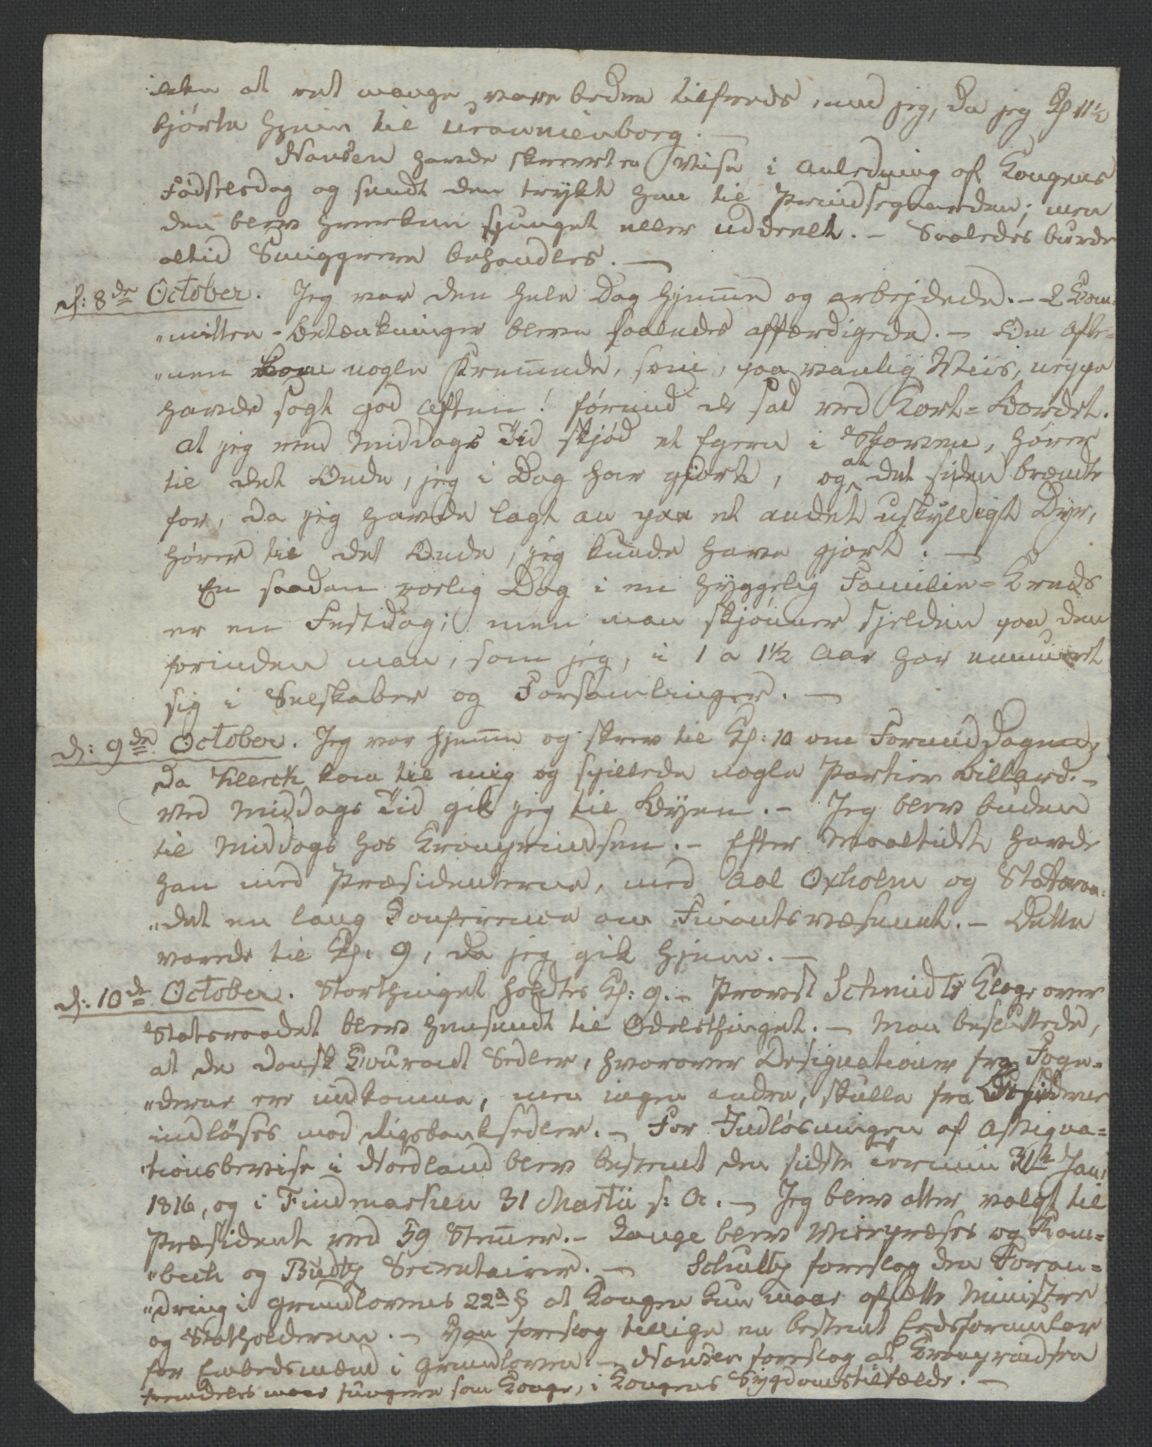 at ret mange vare bedre tilfreds, end jeg, da jeg Kl 11½
kjørte hjem til Uranienborg. —
Hansen havde skrevet en Vise i Anledning af Kongens
Fødselsdag og sendt den trykt hen til Prindsegaarden; men
den blev hverken sjunget eller uddeelt. – Saaledes burde
altid Smiggrere behandles. —
d: 8de October. Jeg var den hele Dag hjemme og arbejdede. – 2 Com-
"mittee-Betænkninger bleve saaledes affærdigede. – Om Afte-
"nen kom nogle Fremmede, som, paa vanlig Viis, neppe
havde sagt god Aften! førend de sad ved Kort-Bordet.
At jeg ved Middags Tid skjød et Egern i Skoven, hører
til det Onde, jeg i Dag har gjort, og at det siden brændte
for, da jeg havde lagt an paa et andet uskyldigt Dyr,
hører til det Gode, jeg kunde have gjort. —
En saadan rolig Dag i en hyggelig Familie-Kreds
er en Festdag; men man skjønner sjelden paa den
forinden man, som jeg, i 1 a 1½ Aar har ennuieret
sig i Selskaber og Forsamlinger. —
d: 9de October. Jeg var hjemme og skrev til Kl: 10 om Formiddagen,
da Klerck kom til mig og spillede nogle Partier Billard. –
Ved Middags Tid gik jeg til Byen. – Jeg blev buden
til Middags hos Kronprindsen. – Efter Maaltidet havde
han med Præsidenterne, med Aal Oxholm og Statsraa-
"det en lang Conference om Finantsvæsenet. – Dette
varede til Kl: 9, da jeg gik hjem. —
d: 10de October. Storthinget holdtes Kl: 9. – Provst Schmidts Klage over
Statsraadet blev hensendt til Odelsthinget. – Man besluttede,
at de dansk Courant Sedler, hvorover Designationer fra Fogu-
"derne ere indkomne, men ingen andre, skulle fra
indløses med Rigsbanksedler. – For Indløsningen af Assigna-
"tionsbevise i Nordland blev bestemt den sidste Termin 31te Jan:
1816, og i Findmarken 31 Martii s: A. – Jeg blev atter valgt til
Præsident ved 59 Stemmer. – Lange blev Vicepræses og Ram-
"bech og Budtz Secretairer. – Schultz foreslog den Foran-
"dring i Grundlovens 22de § at Kongen kun maae afsætte Ministre
og Statholderen. – Han foreslog tillige en bestemt Eedsformular
for Embedsmænd i Grundloven – Hansen foreslog at Kronprindsen
fremdeles maae fungere som Konge, i Kongens Sygdomstilfælde. —